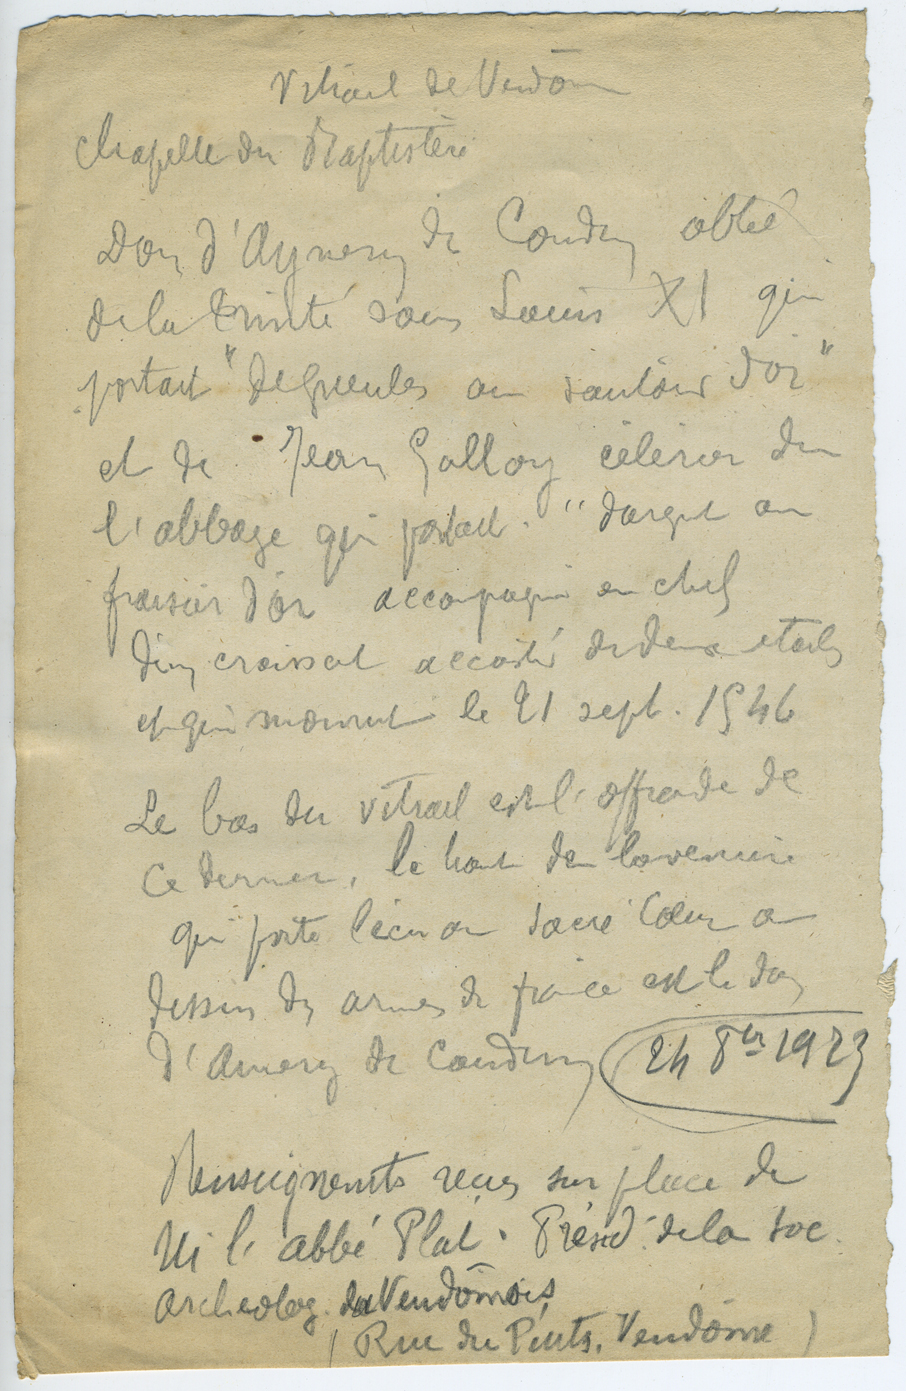 Vitrail de Vendôme
Chapelle du Baptistère
Don d'Aymery de Coudray abbé
de la Trinité sous Louis XI qui
portait "de gueules au sautoir d'or"
et de Jean Galloy célérier de
l'abbaye qui portait "d'argent au
fraisier d'or accompagné en chef
d'un croissant accosté de deux étoiles
et qui mourut le 21 sept. 1546
Le bas du vitrail est l'offrande de
ce dernier, le haut de la verrière
qui porte l'écu au sacré Coeur au
dessus des armes de france est le don
d'Amery de Coudray 24 8bre 1923
Renseignements reçus sur place de
M. l'abbé Plat. Présid. de la Soc.
Archeolog. du Vendômois
(Rue du Puits, Vendôme)